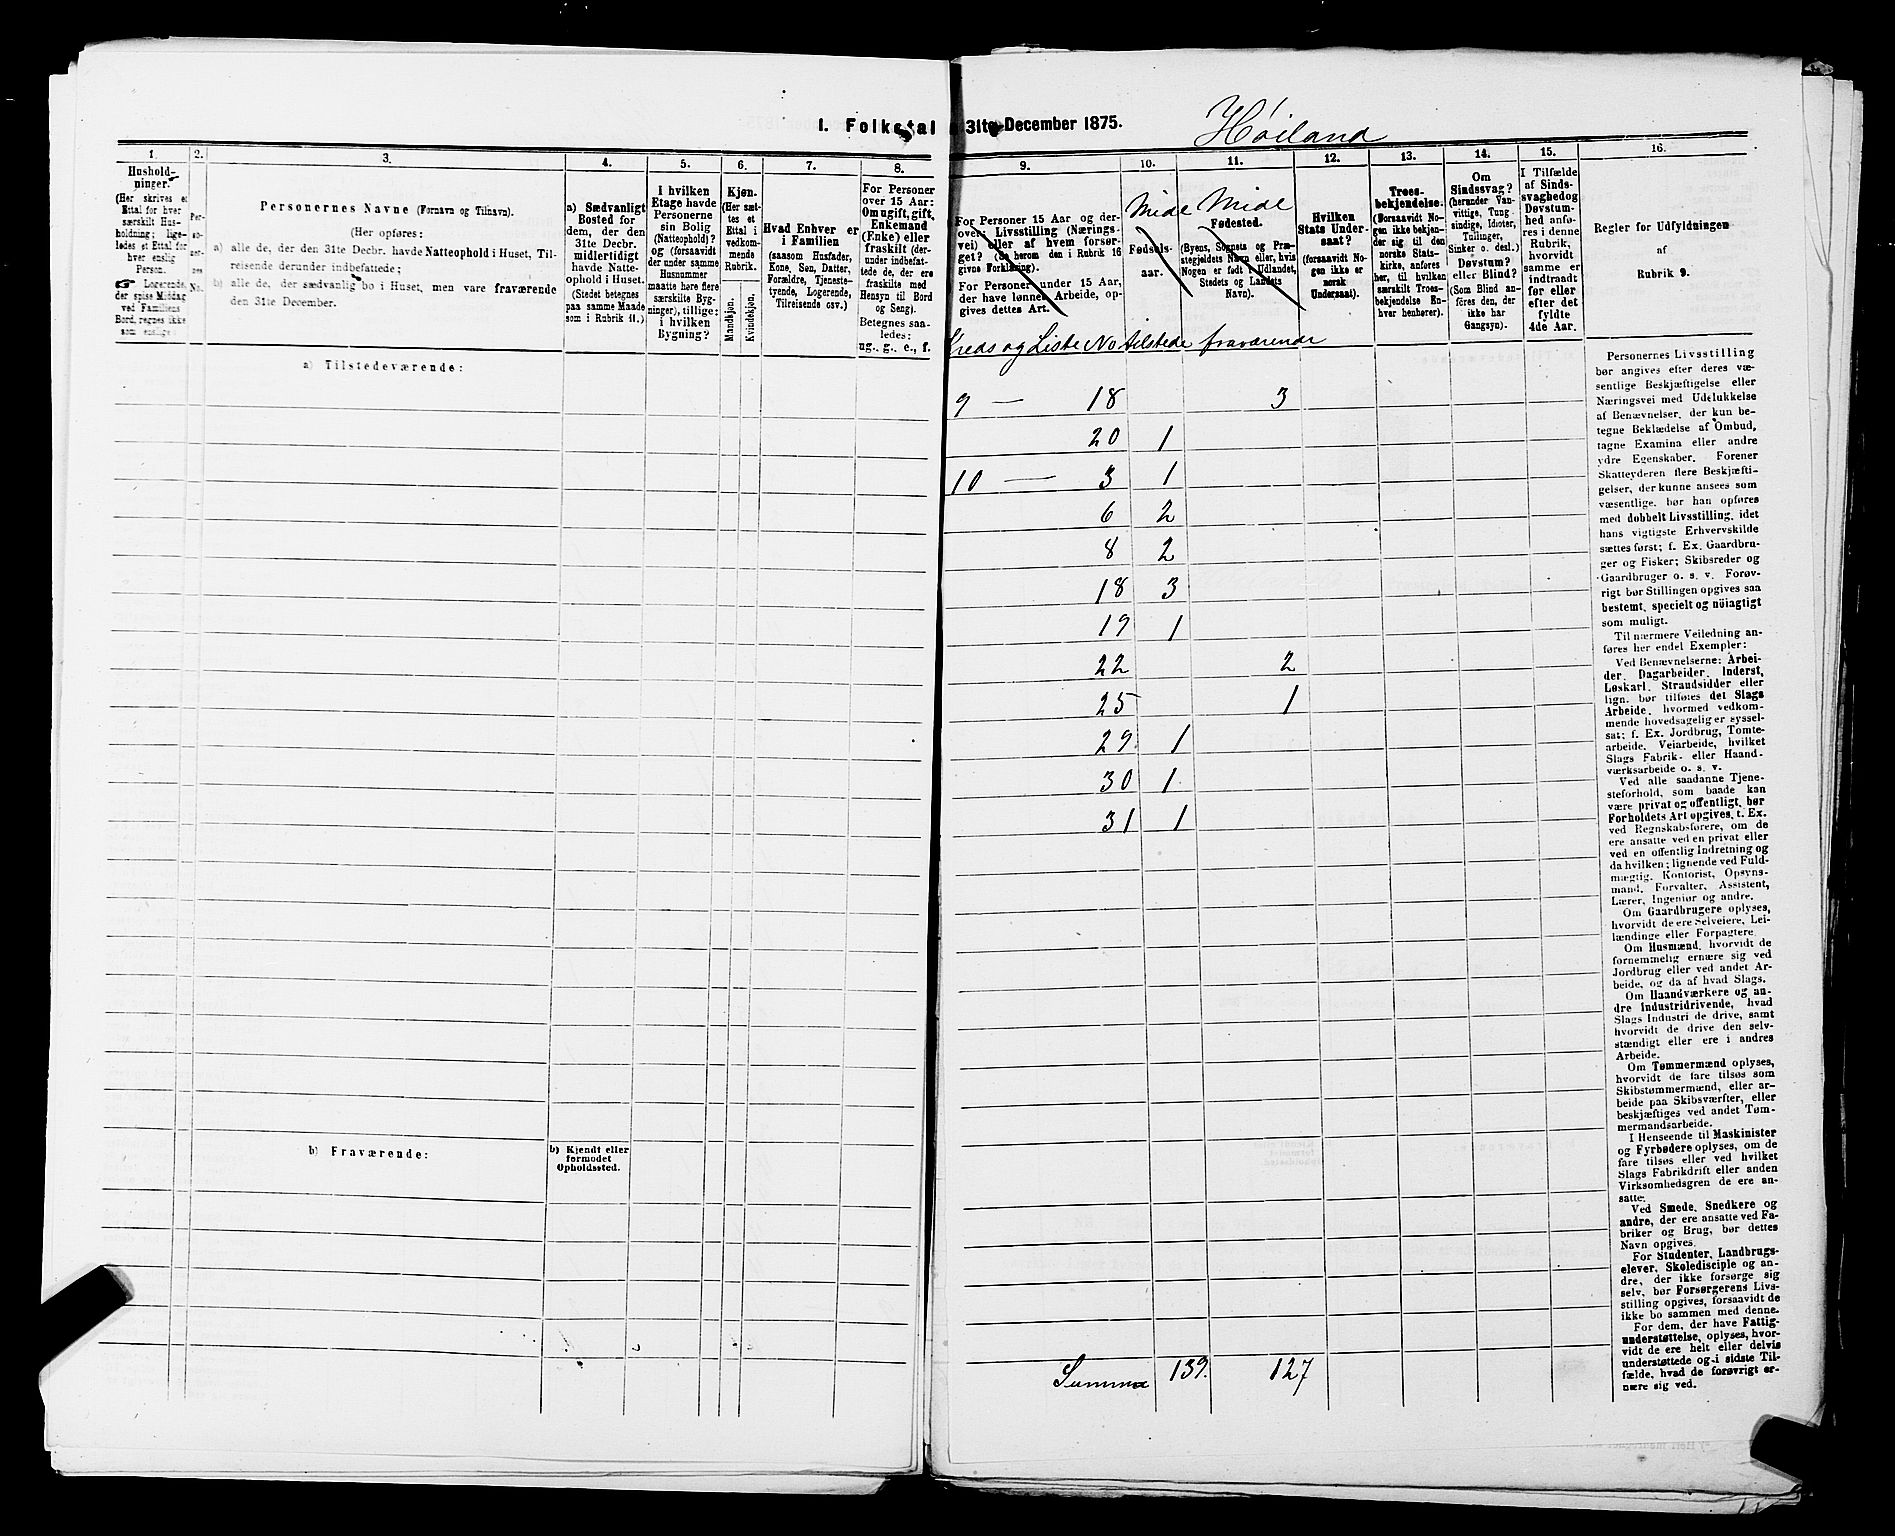 1. Folketal
31te December 1875.
Høiland
1.
2.
3.
4.
5.
6.
7.
8.
9.
10.
11.
12.
13.
14.
15.
16.
Hushold-
ninger.
(Her skrives et
Ettal for hver
særskilt Hus-
holdning; lige-
ledes et Ettal for
hver enslig
Person.
Logerende,
der spise Middag
ved Familiens
Bord, regnes ikke
som enslige.)
Per-
so-
ner-
nes
No.
Personernes Navne (Fornavn og Tilnavn).
(Her opføres:
a) alle de, der den 31te Decbr. havde Natteophold i Huset, Til-
reisende derunder indbefattede;
b) alle de, der sædvanlig bo i Huset, men vare fraværende
den 31te December.
a) Sædvanligt
Bosted for
dem, der den
31te Decbr.
midlertidigt
havde Natte-
ophold i Huset.
(Stedet betegnes
paa samme Maade
som i Rubrik 11.)
I hvilken
Etage havde
Personerne
sin Bolig
(Natteophold)?
og (forsaavidt
der under samme
Husnummer
maatte høre flere
særskilte Byg-
ninger), tillige:
i hvilken
Bygning?
Kjøn.
(Her sæt-
tes et
Ettal i
vedkom-
mende
Rubrik.
Mandkjøn.
Kvindekjøn.
Hvad Enhver er
i Familien
(saasom Husfader,
Kone, Søn, Datter,
Forældre, Tjeneste-
tyende, Logerende,
Tilreisende osv.)
For Personer
over 15 Aar:
Om ugift, gift,
Enkemand
(Enke) eller
fraskilt (der-
under indbefat-
tede de, der ere
fraskilte med
Hensyn til Bord
og Seng).
Betegnes saa-
ledes:
ug., g., e., f.
For Personer 15 Aar og der-
over: Livsstilling (Nærings-
vei) eller af hvem forsør-
get? (Se herom den i Rubrik 16
givne Forklaring).
For Personer under 15 Aar,
der have lønnet Arbeide, op-
gives dettes Art.
Mide
Fødsels-
aar.
Mide
Fødested.
(Byens, Sognets og Præ-
stegjeldets Navn eller, hvis
Nogen er født i Udlandet,
Stedets og Landets
Navn).
Hvilken
Stats Under-
saat?
(forsaavidt No-
gen ikke er
norsk
Undersaat).
Troes-
bekjendelse.
(Forsaavidt No-
gen ikke bekjen-
der sig til den
norske Stats-
kirke, anføres
her, til hvilken
særskilt Troes-
bekjendelse En-
hver henhører).
Om
Sindssvag?
(herunder Van-
vittige, Tung-
sindige, Idioter,
Tullinger,
Sinker o. desl.)
Døvstum?
eller Blind?
(Som Blind an-
føres den, der
ikke har
Gangsyn).
I Tilfælde
af Sinds-
svaghed og
Døvstum-
hed anfø-
res i denne
Rubrik,
hvorvidt
samme er
indtraadt
før eller
efter det
fyldte
4de Aar.
Regler for Udfyldningen
af
Rubrik 9.
Kreds og Liste No tilstede fraværende
a) Tilstedeværende:
9 — 18 3
20 1
10 — 3 1
6 2
8 2
18 3
19 1
22 2
25 1
29 1
30 1
31 1
b) Fraværende:
b) Kjendt eller
formodet
Opholdssted.
Summa 139. 127
Personernes Livsstilling
bør angives efter deres væ-
sentlige Beskjæftigelse eller
Næringsvei med Udelukkelse
af Benævnelser, der kun be-
tegne Beklædelse af Ombud,
tagne Examina eller andre
ydre Egenskaber. Forener
Skatteyderen flere Beskjæfti-
gelser, der kunne ansees som
væsentlige, bør han opføres
med dobbelt Livsstilling, idet
hans vigtigste Erhvervskilde
sættes først; f. Ex. Gaardbru-
ger og Fisker; Skibsreder og
Gaardbruger o. s. v. Forøv-
rigt bør Stillingen opgives saa
bestemt, specielt og nøiagtigt
som muligt.
Til nærmere Veiledning an-
føres her endel Exempler:
Ved Benævnelserne: Arbei-
der, Dagarbeider, Inderst,
Løskarl, Strandsidder eller
lign. bør tilføies det Slags
Arbeide, hvormed vedkom-
mende hovedsagelig er syssel-
sat; f. Ex. Jordbrug, Tomte-
arbeide, Veiarbeide, hvilket
Slags Fabrik- eller Haand-
værksarbeide o. s. v.
Ved alle saadanne Tjene-
steforhold, som baade kan
være privat og offentligt, bør
Forholdets Art opgives, t. Ex.
ved Regnskabsførere, om de
ere ansatte ved en privat eller
ved en offentlig Indretning og
da hvilken; lignende ved Fuld-
mægtig, Kontorist, Opsyns-
mand, Forvalter, Assistent,
Lærer, Ingeniør og andre.
Om Gaardbrugere oplyses,
hvorvidt de ere Selveiere, Lei-
lændinge eller Forpagtere.
Om Husmænd, hvorvidt de
fornemmelig ernære sig ved
Jordbrug eller ved andet Ar-
beide, og da af hvad Slags.
Om Haandværkere og an-
dre Industridrivende, hvad
Slags Industri de drive, samt
hvorvidt de drive den selv-
stændigt eller ere i andres
Arbeide.
Om Tømmermænd oplyses,
hvorvidt de fare tilsøs som
Skibstømmermænd, eller ar-
beide paa Skibsværfter, eller
beskjæftiges ved andet Tøm-
mermandsarbeide.
I Henseende til Maskinister
og Fyrbødere oplyses, om de
fare tilsøs eller ved hvilket
Slags Fabrikdrift eller anden
Virksomhedsgren de ere an-
satte.
Ved Smede, Snedkere og
andre, der ere ansatte ved Fa-
briker og Brug, bør dettes
Navn opgives.
For Studenter, Landbrugs-
elever, Skoledisciple og an-
dre, der ikke forsørge sig
selv, bør Forsørgerens Livs-
stilling opgives, forsaavidt de
ikke bo sammen med denne.
For dem, der have Fattig-
understøttelse, oplyses, hvor-
vidt de ere helt eller delvis
understøttede og i sidste Til-
fælde, hvad de forøvrigt er-
nære sig ved.